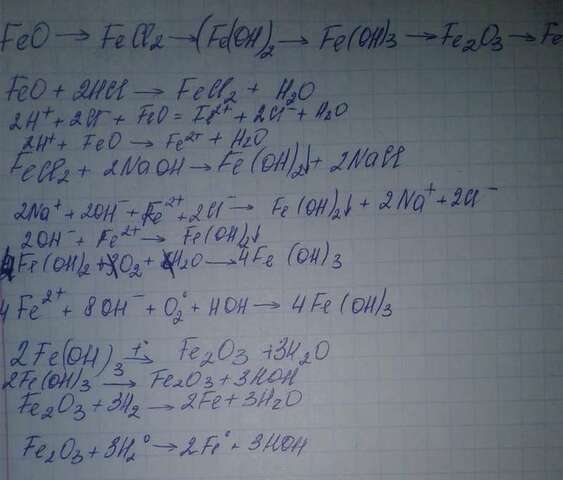 FeO → FeCl₂ → (Fe(OH)₂ → Fe(OH)₃ → Fe₂O₃ → Fe
FeO + 2HCl → FeCl₂ + H₂O
2H⁺ + 2Cl⁻ + FeO = Fe²⁺ + 2Cl⁻ + H₂O
2H⁺ + FeO → Fe²⁺ + H₂O
FeCl₂ + 2NaOH → Fe(OH)₂↓ + 2NaCl
2Na⁺ + 2OH⁻ + Fe²⁺ + 2Cl⁻ → Fe(OH)₂↓ + 2Na⁺ + 2Cl⁻
2OH⁻ + Fe²⁺ → Fe(OH)₂↓
4Fe(OH)₂ + O₂ + H₂O → 4Fe(OH)₃
4Fe²⁺ + 8OH⁻ + O₂° + HOH → 4Fe(OH)₃
2Fe(OH)₃ →(t°) Fe₂O₃ + 3H₂O
2Fe(OH)₃ → Fe₂O₃ + 3HOH
Fe₂O₃ + 3H₂ → 2Fe + 3H₂O
Fe₂O₃ + 3H₂° → 2Fe° + 3HOH